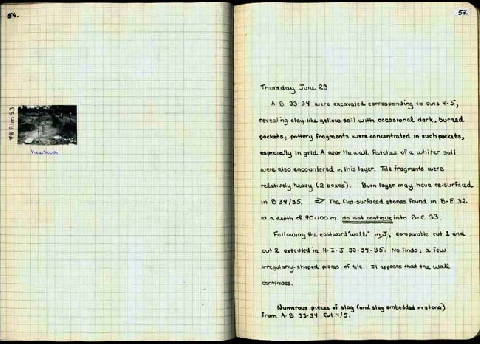 56.
57.
View South
Thursday June 29
A-B 33-34 were excavated corresponding to cuts 4-5,
revealing clay-like yellow soil with occasional dark, burned
pockets; pottery fragments were concentrated in such pockets,
especially in grid A near the wall. Patches of a whiter soil
were also encountered in this layer. Tile fragments were
relatively heavy (2 boxes). Burn layer may have re-surfaced
in B 34/35. ⇒ The flat-surfaced stones found in B-E 32.
at a depth of 90-100 m. do not continue into B-E 33.
Following the eastward "wall" in J, comparable cut 1 and
cut 2 executed in H-I-J 33-34-35. No finds, a few
irregularly-shaped pieces of tile. It appears that the wall
continues.
Numerous pieces of slag (and slag embedded in stone)
from A-B 33-34 Cut 4/5.